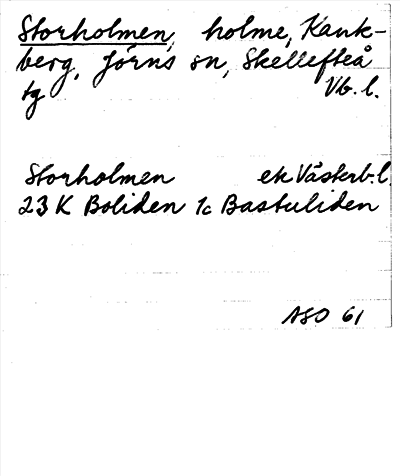 Storholmen, holme, Kank-
berg, Jörns sn, Skellefteå
tg Vb. l.
Storholmen ek Västerb. l.
23 K Boliden 1c Bastuliden
ASO 61